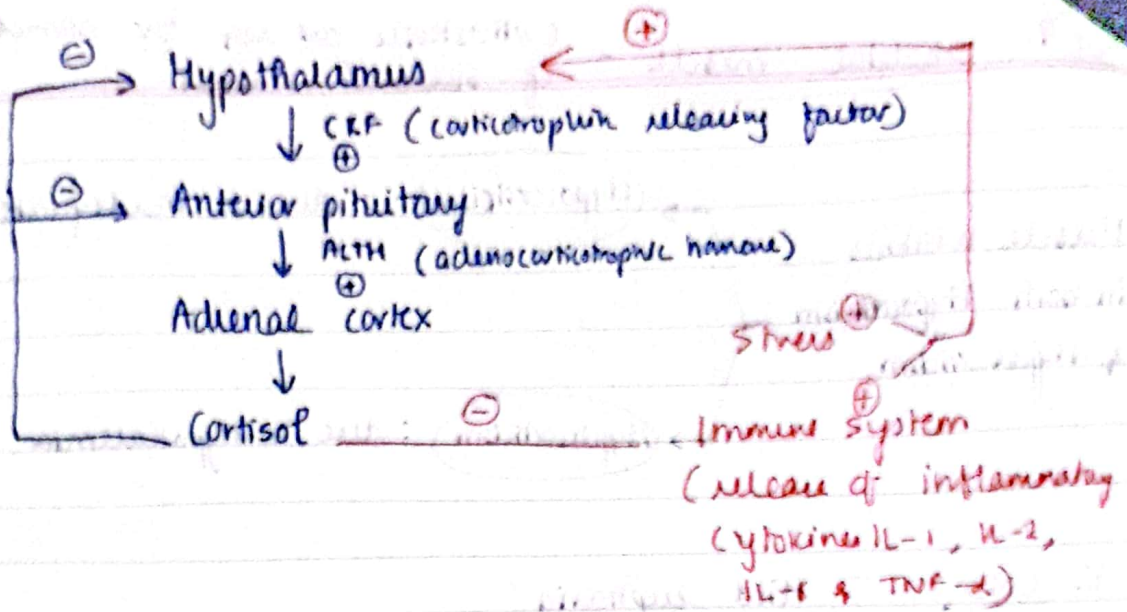 ⊖ Hypothalamus ⊕
↓ CRF (corticotrophin releasing factor)
⊕
⊖ Anterior pituitary
↓ ACTH (adenocorticotrophic hormone)
⊕
Adrenal cortex
Stress ⊕
↓
⊕
Cortisol ⊖ Immune system
(release of inflammatory
cytokines IL-1, IL-2,
& TNF-α)